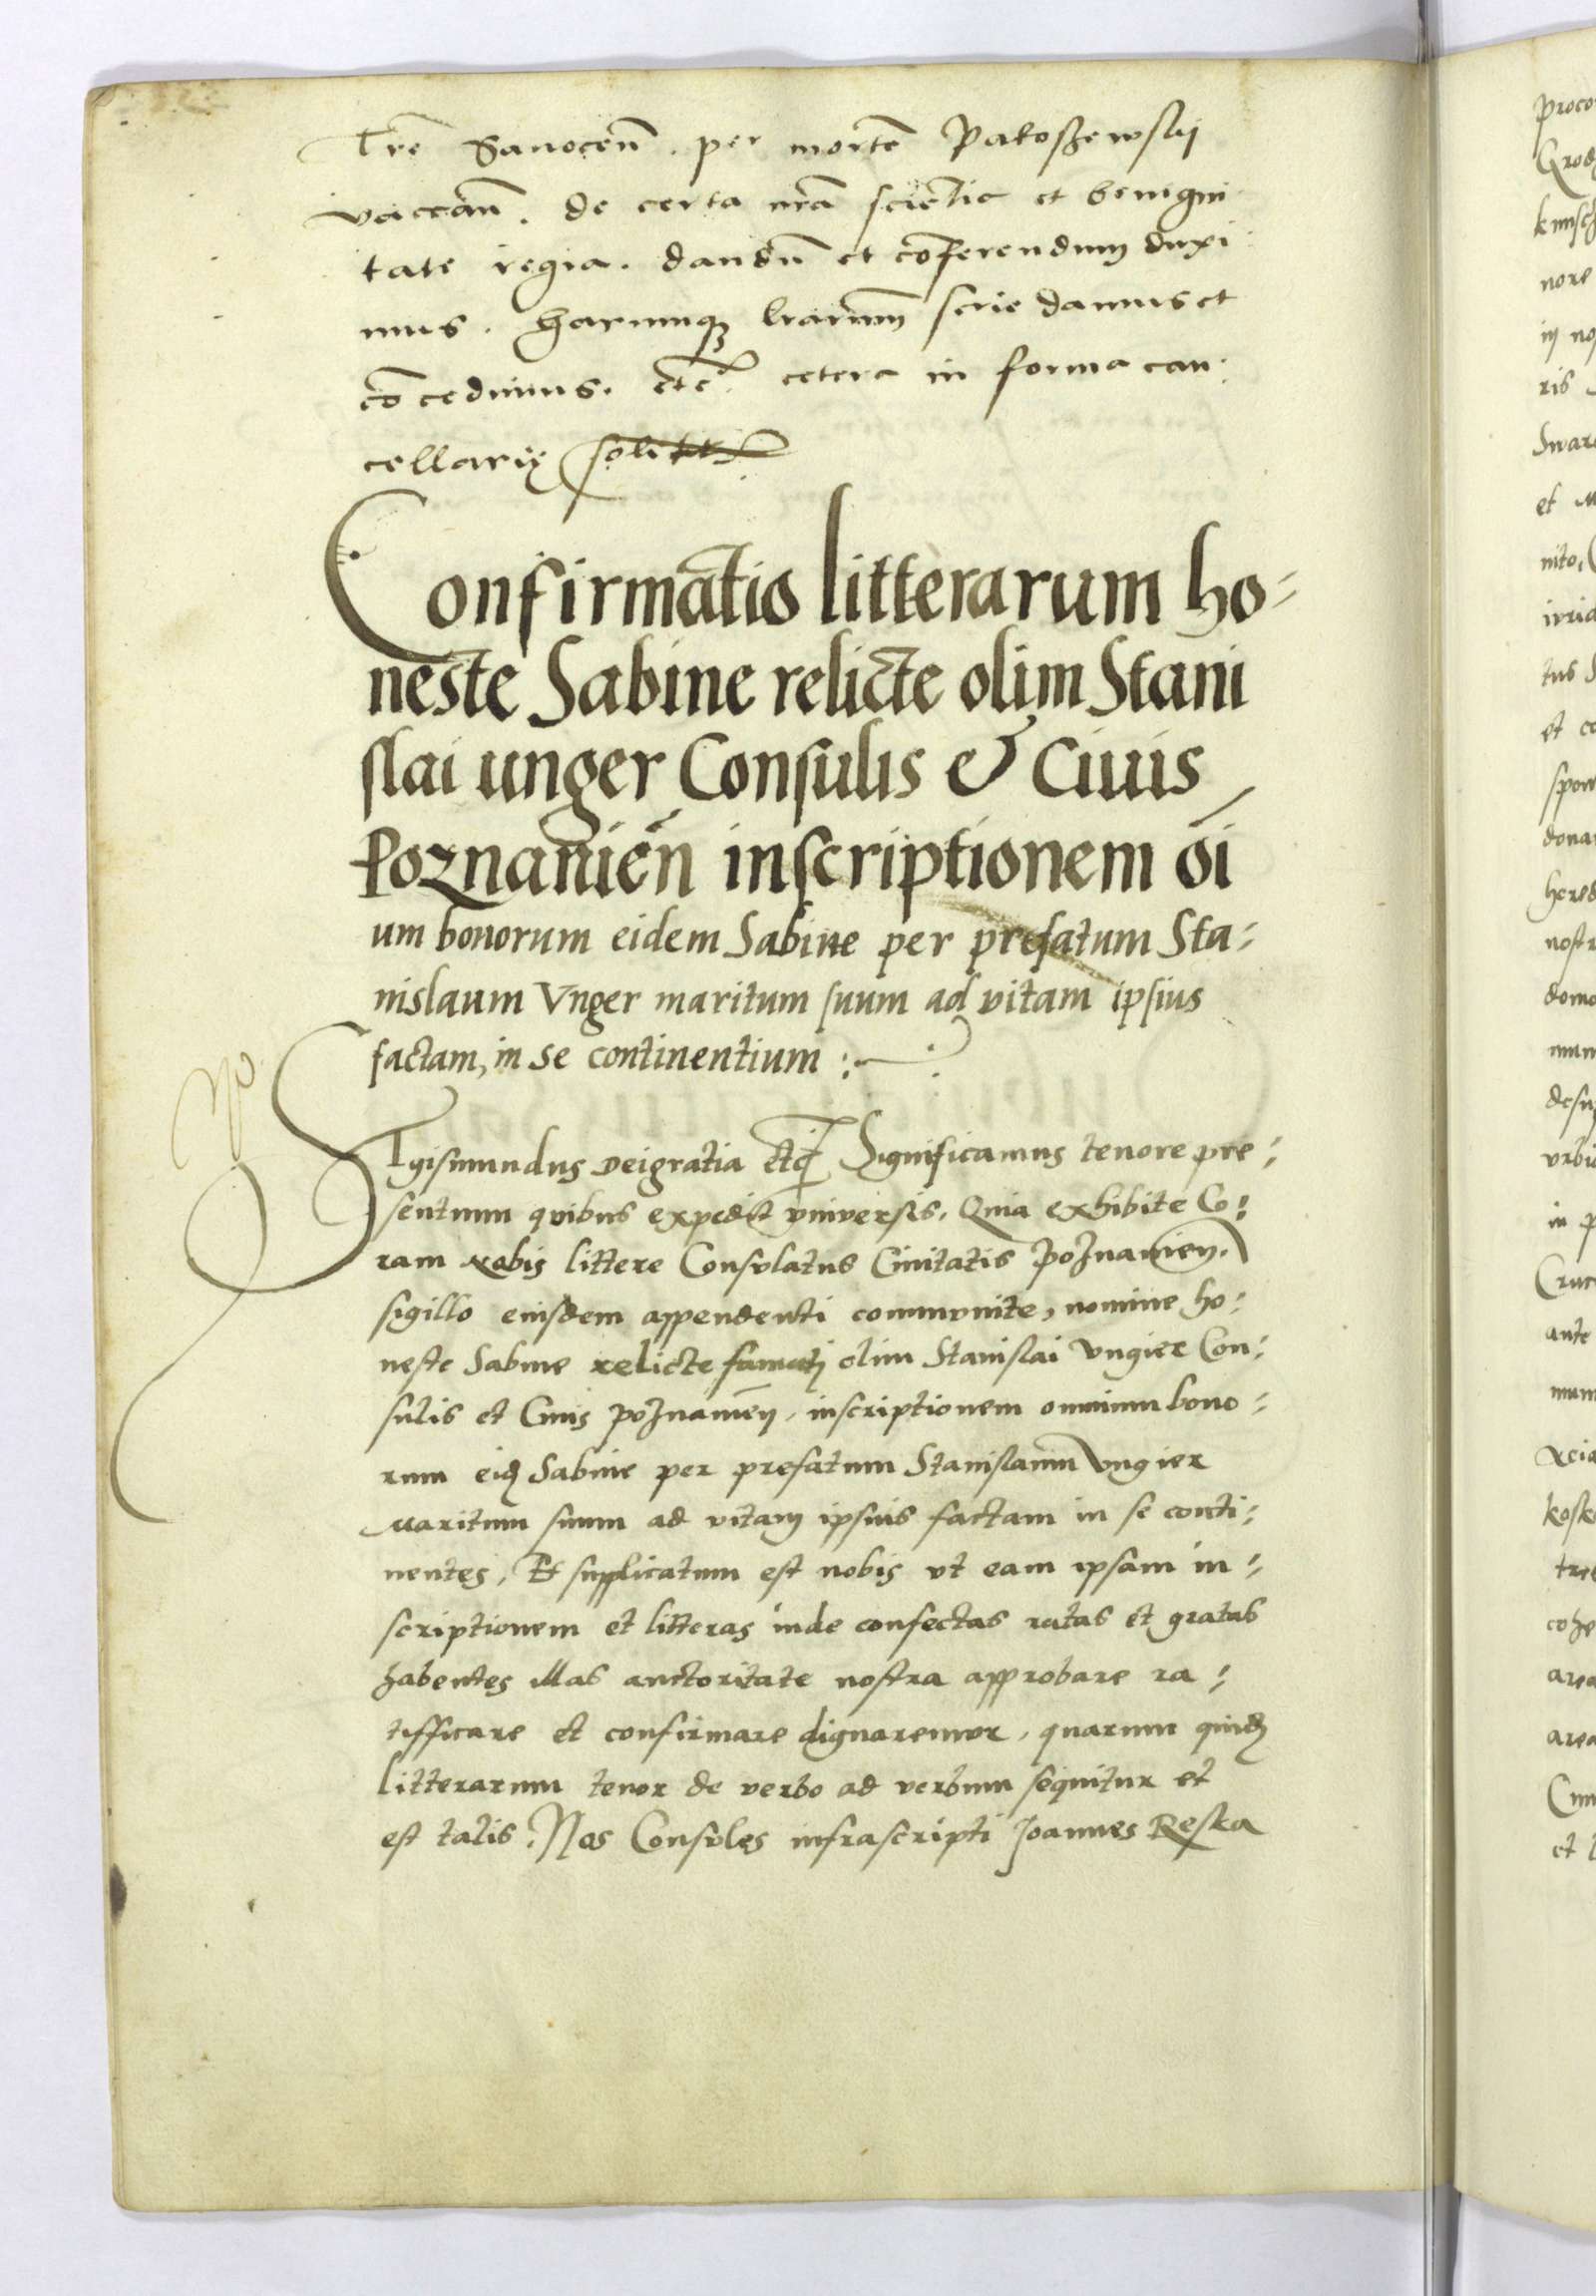 Tre Sanoceñ. per mortē Pakoszewskij
vaccañ. de certa nrā sciētia et benigni
tate regia. dandū et cōferendum duxi
mus. Harumq₃ lrarum serie damus et
cōcedimus. etc̄. cetera in forma can:
cellarię
Confirmatio litterarum ho-
neste Sabine relicte olim Stani
slai unger Consulis & Ciuis
Poznanień inscriptionem oī
um bonorum eidem Sabine per prefatum Sta-
nislaum Vnger maritum suum ad vitam ipsius
factam, in se continentium :
Sigismundus Dei gratia etc̄ Significamus tenore pre-
sentium quibus expedit vniuersis. Quia exhibite Co-
ram nobis littere Consulatus Ciuitatis Poznanien.
sigillo eiusdem appendenti communite, nomine ho-
neste Sabine relicte famati olim Stanislai Vngier Con-
sulis et Ciuis Poznanień, inscriptionem omnium bono-
rum eidȝ Sabine per prefatum Stanislaum Vngier
Maritum suum ad vitam ipsius factam in se conti-
nentes, Et supplicatum est nobis vt eam ipsam in-
scriptionem et litteras inde confectas ratas et gratas
habentes illas auctoritate nostra approbare ra-
tifficare et confirmare dignaremur, quarum quidȝ
litterarum tenor de verbo ad verbum sequitur et
est talis. Nos Consules infrascripti Joannes Reska